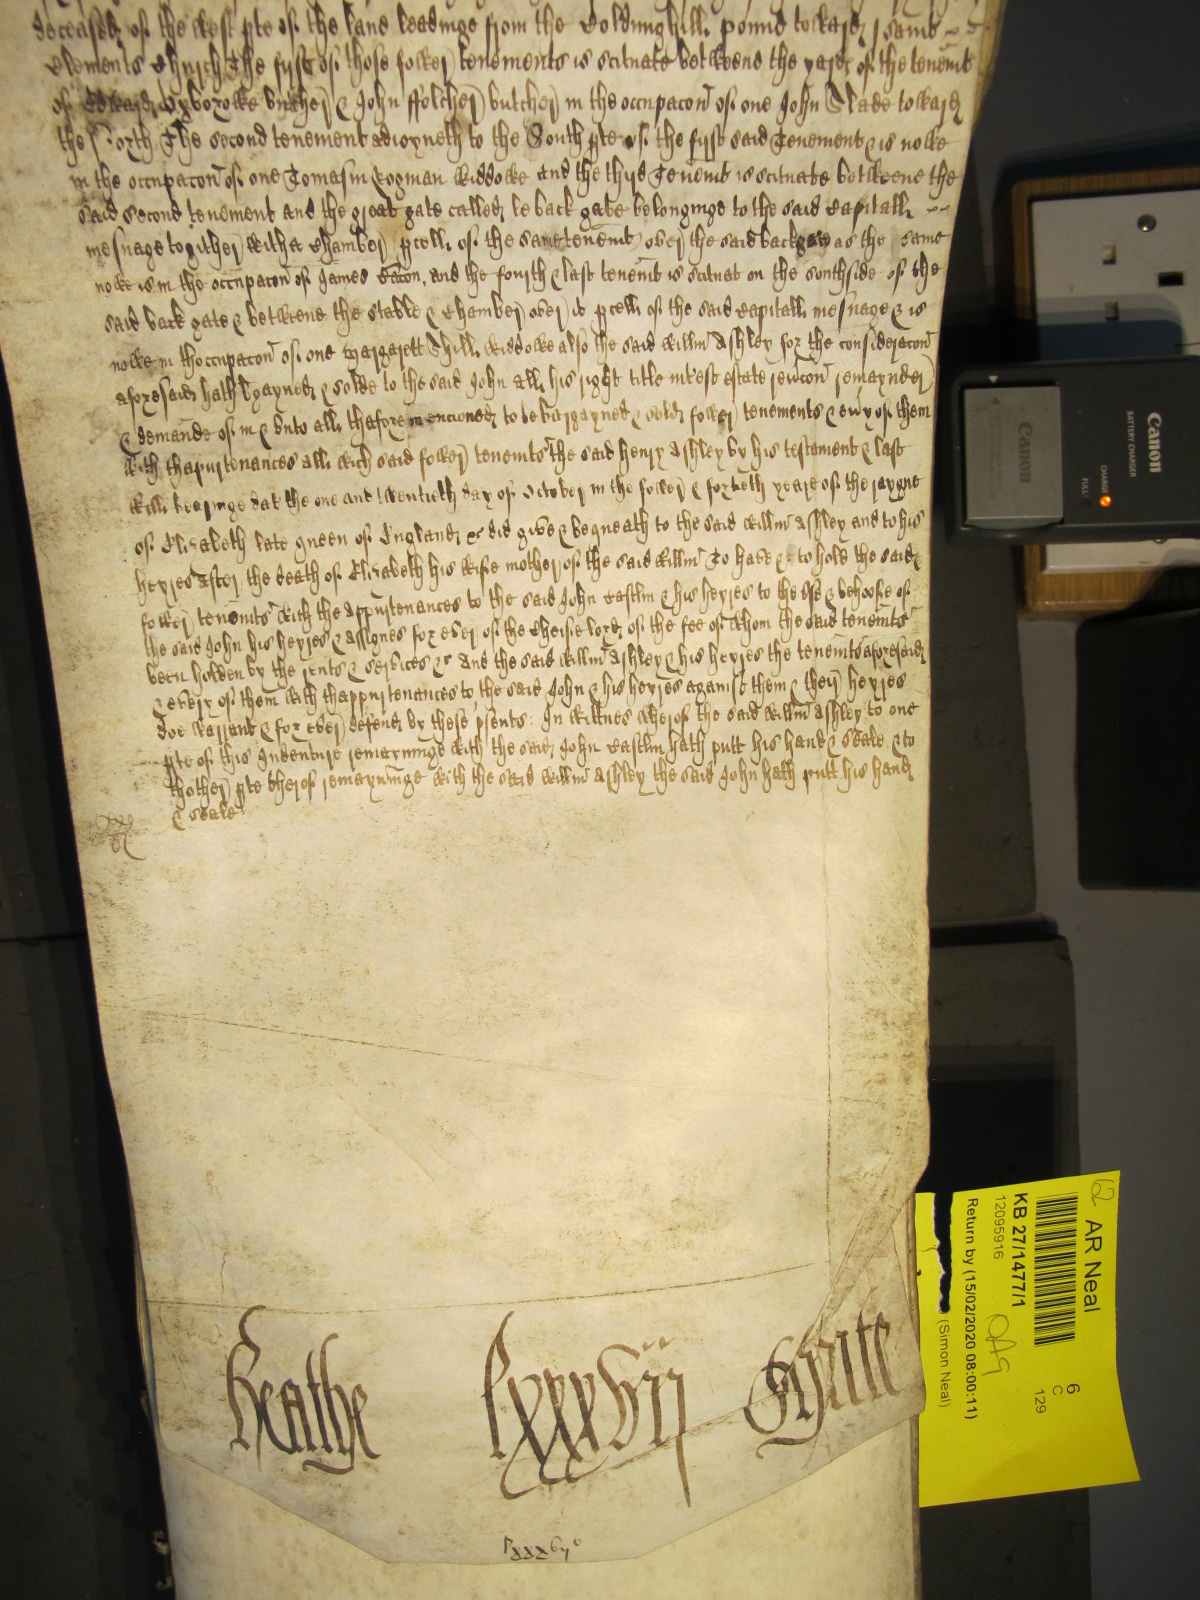 deceased of the west pte of the lane leadinge from the Coldunghill pound toward saint
Clements Church The first of those fower tenements is scituate betweene the yard of the tenemt
of Edward butcher & John ffolcher butcher in the occupacon of one John Slade toward
the North The second tenement adioyneth to the South pte of the first said Tenement & is nowe
in the occupacon of one Tomasin widdowe and the third Tenemt is scituate betweene the
said second tenement and the great gate called le back gate belonginge to the said Capitall
mesuage togither with a Chamber pcell of the same tenemt over the said backgate as the same
nowe is in the occupacon of James Bacon, and the fourth & last tenemt is scituat on the southside of the
said back gate & betweene the stable & Chamber over it pcell of the said Capitall mesuage & is
nowe in thoccupacon of one Margarett Hill widdowe also the said Willm Ashley for the consideracon
aforesaid hath bargayned & solde to the said John all his right title interest estate revercon remaynder
& demande of in & unto all thaforemencioned to be bargayned & sold fower tenements & evry of them
with thapurtenances all wich said fower tenemts the said henry Ashley by his testament & last
will bearinge dat the one and twentieth day of October in the fower & fortieth yeare of the rayne
of Elizabeth late queen of England &c did give & bequeath to the said Willm Ashley and to his
heyres after the death of Elizabeth his wife mother of the said Willm To have & to hold the said
fower tenemts with the appurtenances to the said John Castlin & his heyres to the use & behoofe of
the said John his heyres & assignes for ever of the Cheife lord of the fee of whom the said tenemts
been holden by the rents & services &c And the said Willm Ashley & his heyres the tenemts aforesaid
& every of them with thappurtenances to the said John & his heyres against them & their heyres
doe warrant & for ever defend by these psents In wittnes wherof the said Willm Ashley to one
pte of this Indenture remayninge with the said John Castlin hath putt his hand & seale & to
thother pte therof remayninge with the said Willm Ashley the said John hath putt his hand
& seale
Heathe lxxxvij
lxxxvjo
Canon
BATTERY CHARGER
CHARGE
FULL
Canon
62 AR Neal
KB 27/1477/1
12095916
Return by (15/02/2020 08:00:11)
(Simon Neal)
6
C
129